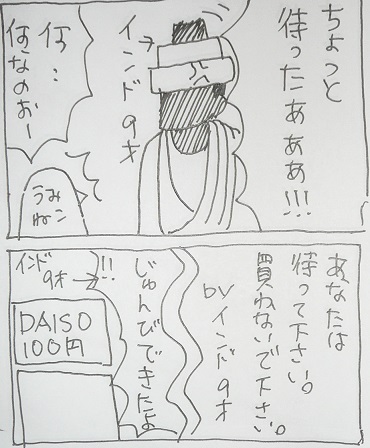 ちょっと
待ったあああ!!!
インド
9才
何…
何なのおー
うみ
ねこ
あなたは
待って下さい。
買わないで下さい。
byインド9才
じゅんびできたよ
!!
インド
9才
DAISO
100円